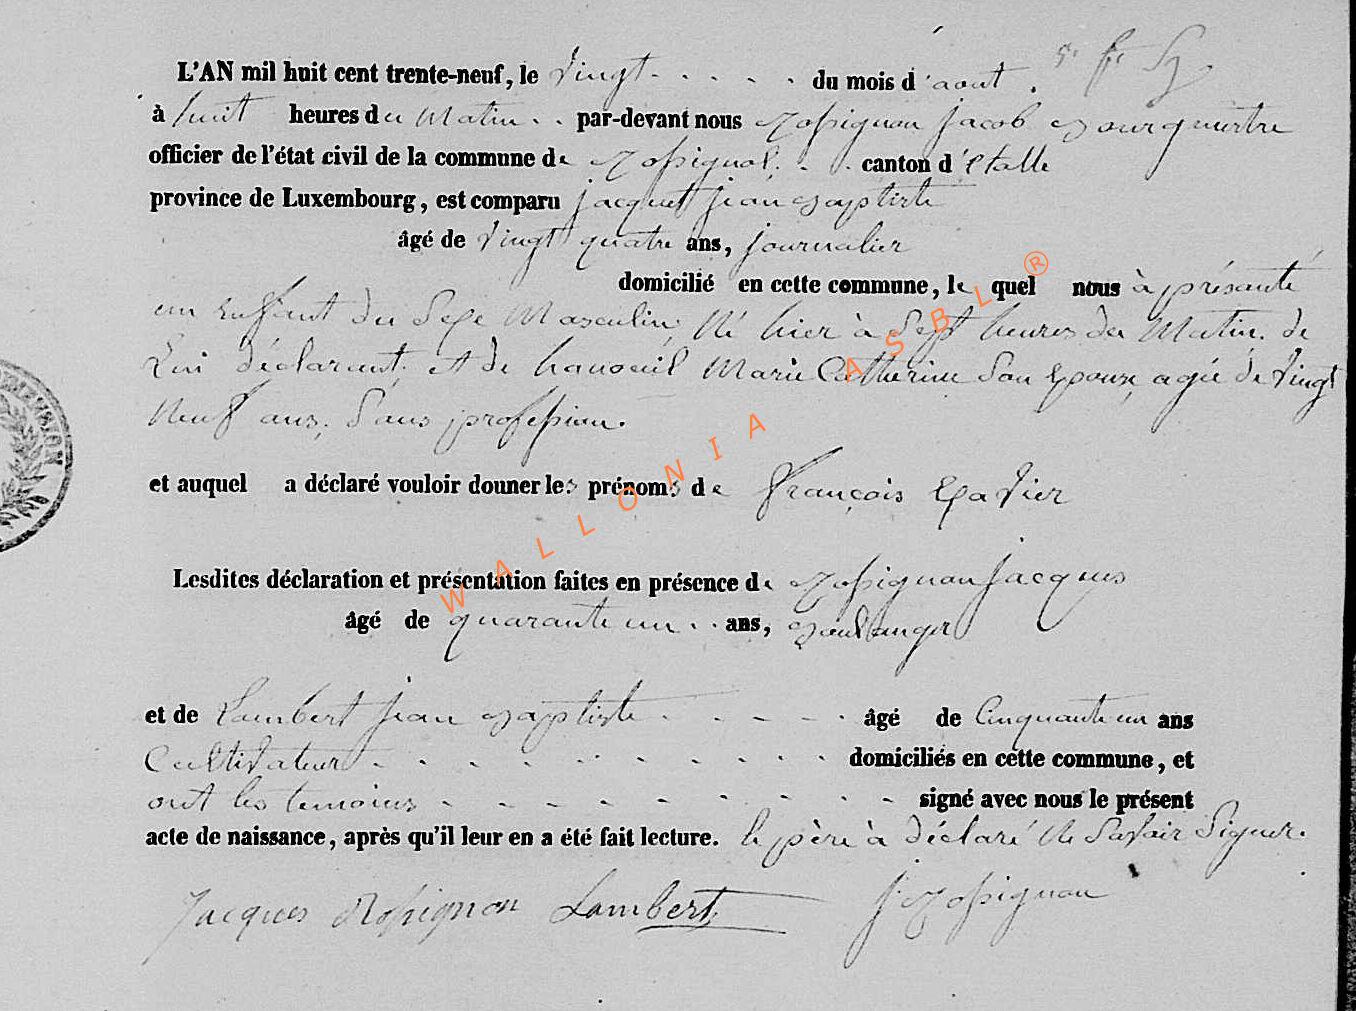 L'AN mil huit cent trente-neuf, le vingt . . . . . du mois d'aout .
à huit heures du Matin . . par-devant nous Rossignon Jacob Bourgmestre
officier de l'état civil de la commune de Rossignol . . . canton d'Etalle
province de Luxembourg, est comparu jacquet jean Baptiste
âgé de vingt quatre ans, journalier
domicilié en cette commune, le quel nous à présanté
un Enfant du Sexe Masculin, Né hier à Sept heures du Matin. de
Lui déclarant. et de Marie Catherine Son Epouse, agée de vingt
Neuf ans, Sans profession.
et auquel a déclaré vouloir donner les prénoms de François Xavier
Lesdites déclaration et présentation faites en présence de Rossignon Jacques
âgé de quarante un . . ans, Boulanger
et de Lambert Jean Baptiste . . . . . âgé de Cinquante un ans
Cultivateur . . . . . . . . . . . domiciliés en cette commune, et
ont les temoins . . . . . . . . . signé avec nous le présent
acte de naissance, après qu'il leur en a été fait lecture. le père à déclaré Ne Savoir Signer.
Jacques Rossignon Lambert J. Rossignon
WALLONIA ASBL ®